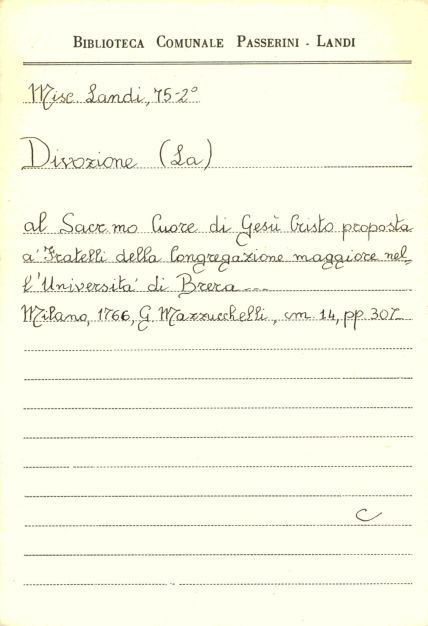 BIBLIOTECA COMUNALE PASSERINI - LANDI
Misc. Landi, 75-2°
Divozione (La)
al Sacr.mo Cuore di Gesù Cristo proposta
a' Fratelli della Congregazione maggiore nel-
l'Università di Brera ---
Milano, 1766, G. Mazzucchelli, cm. 14, pp. 307
C